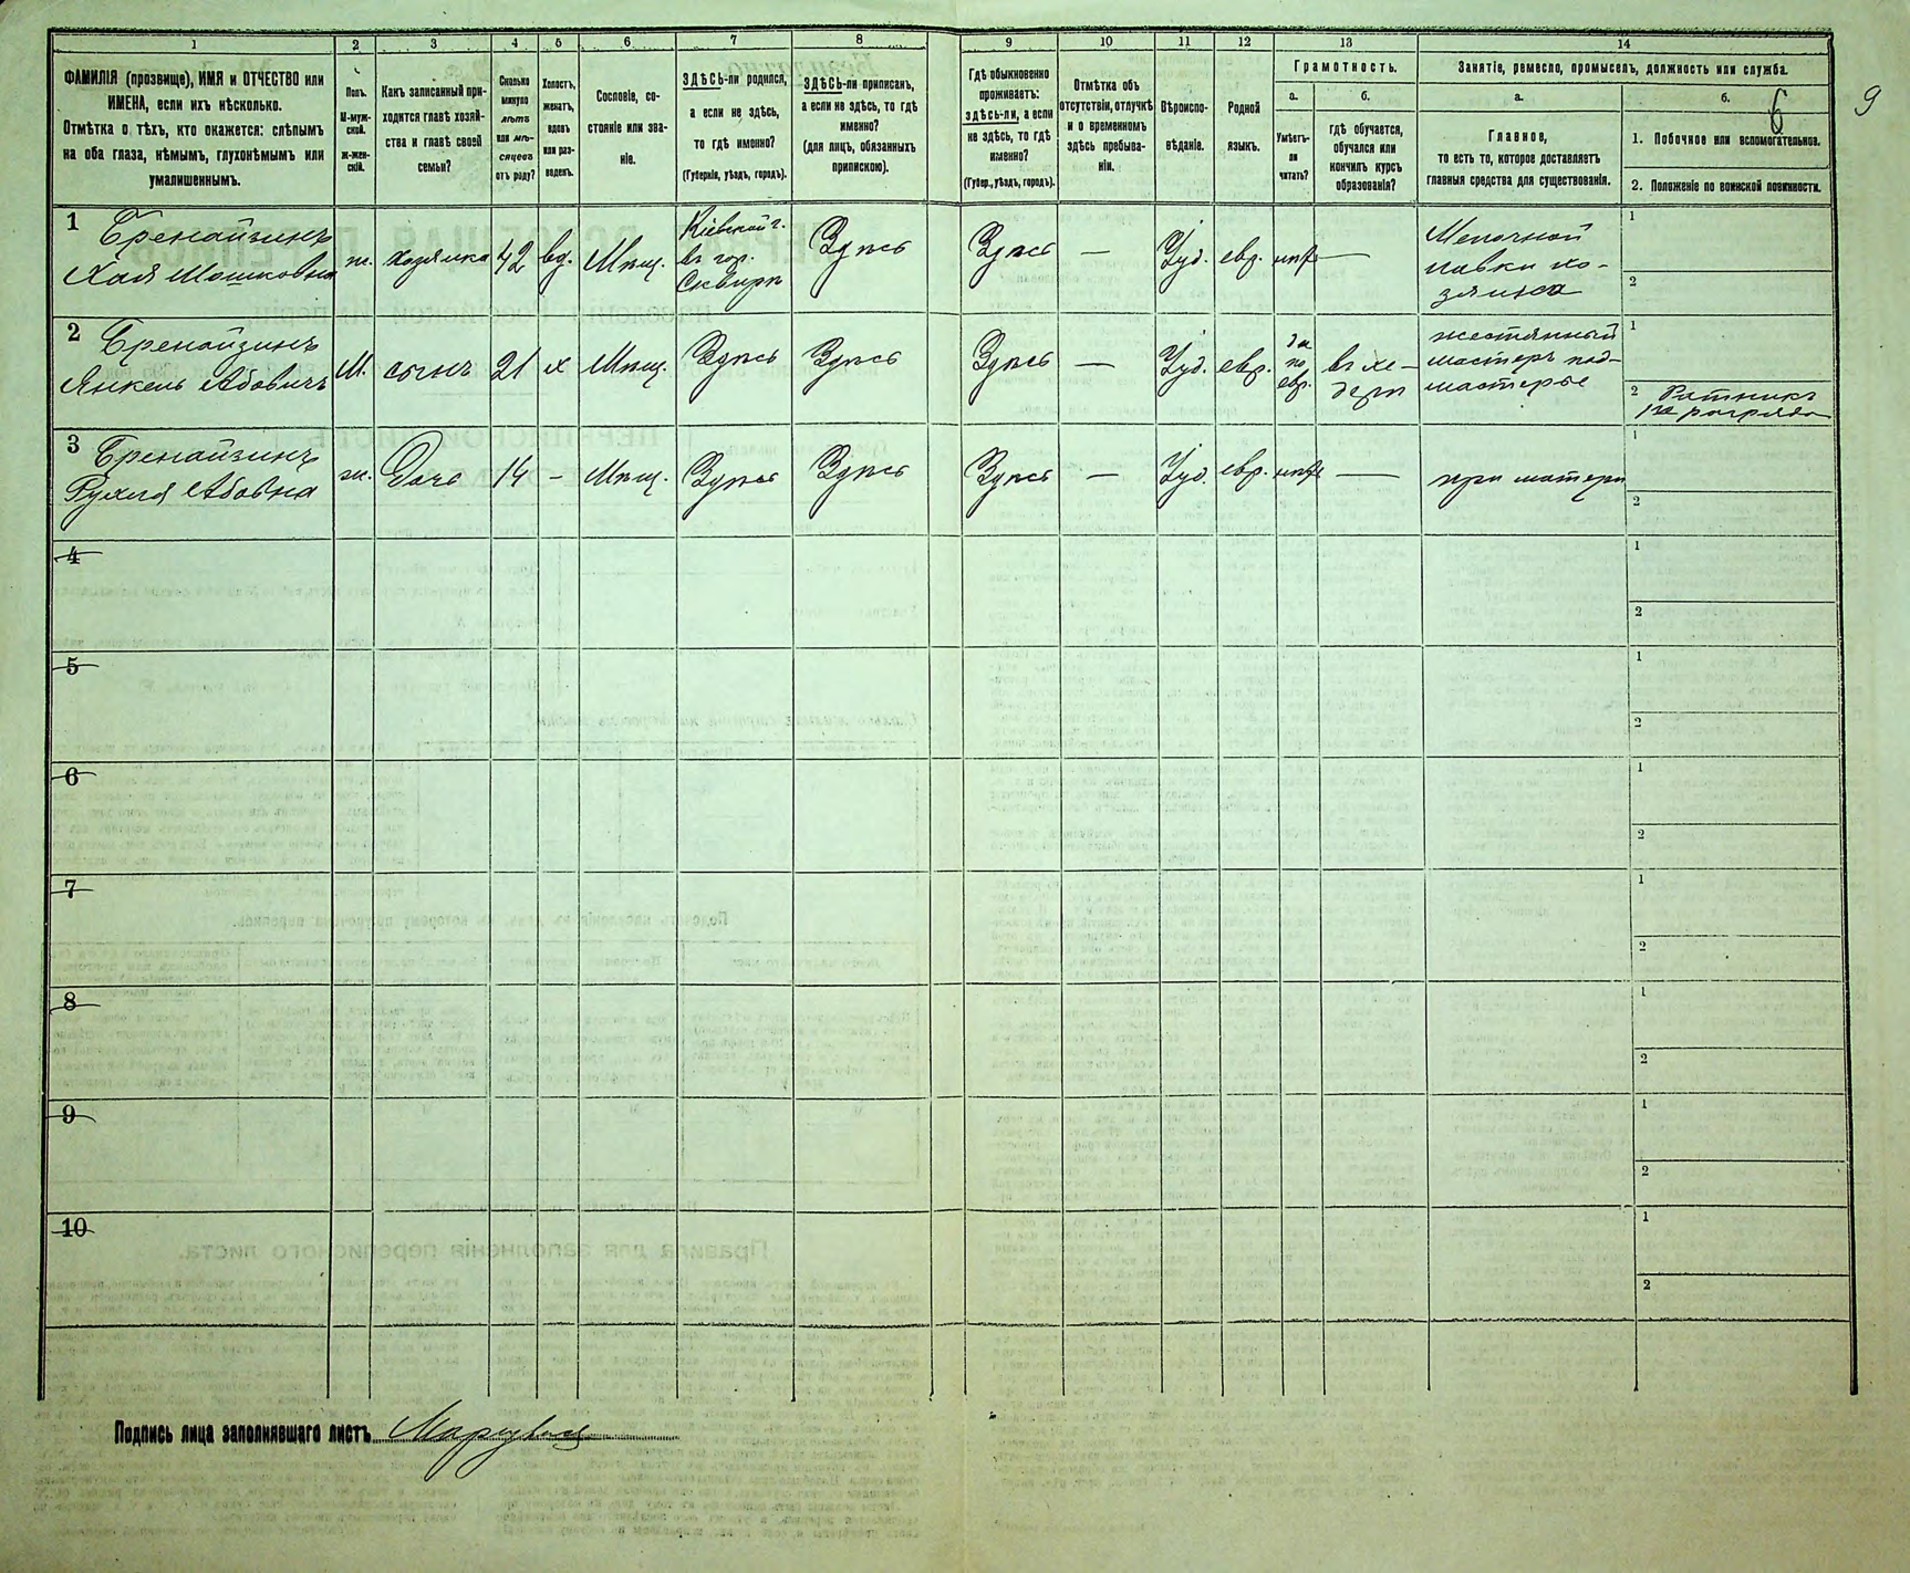 1 2 3 4 5 6 7 8 9 10 11 12 13 14
ФАМИЛІЯ (прозвище), ИМЯ и ОТЧЕСТВО или
ИМЕНА, если ихъ нѣсколько.
Отмѣтка о тѣхъ, кто окажется: слѣпымъ
на оба глаза, нѣмымъ, глухонѣмымъ или
умалишеннымъ.
Полъ.
М-муж-
ской.
Ж-жен-
скій.
Какъ записанный при-
ходится главѣ хозяй-
ства и главѣ своей
семьи?
Сколько
минуло
лѣтъ
или мѣ-
сяцевъ
отъ роду?
Холостъ,
женатъ,
вдовъ
или раз-
веденъ.
Сословіе, со-
стояніе или зва-
ніе.
ЗДѢСЬ-ли родился,
а если не здѣсь,
то гдѣ именно?
(Губернія, уѣздъ, городъ).
ЗДѢСЬ-ли приписанъ,
а если не здѣсь, то гдѣ
именно?
(для лицъ, обязанныхъ
припискою).
Гдѣ обыкновенно
проживаетъ:
здѣсь-ли, а если
не здѣсь, то гдѣ
именно?
(Губер., уѣздъ, городъ).
Отмѣтка объ
отсутствіи, отлучкѣ
и о временномъ
здѣсь пребыва-
ніи.
Вѣроиспо-
вѣданіе.
Родной
языкъ.
Грамотность.
а.
Умѣетъ-
ли
читать?
б.
гдѣ обучается,
обучался или
кончилъ курсъ
образованія?
Занятіе, ремесло, промыселъ, должность или служба.
а.
Главное,
то есть то, которое доставляетъ
главныя средства для существованія.
б.
6
9
1. Побочное или вспомогательное.
2. Положеніе по воинской повинности.
1 Бренайзинъ
Хая Мошковна
ж.
хозяйка
42
вд.
Мѣщ.
Кіевской г.
въ гор.
Сквирѣ
Здѣсь
Здѣсь
—
Іуд.
евр.
нѣтъ
—
Мелочной
лавки хо-
зяйка
1
2
2 Бренайзинъ
Янкель Абовичъ
М.
сынъ
21
х
Мѣщ.
Здѣсь
Здѣсь
Здѣсь
—
Іуд.
евр.
да
по
евр.
въ хе-
дерѣ
жестяный
мастеръ под-
мастерье
1
2 Ратникъ
1го разряда
3 Бренайзинъ
Рухля Абовна
ж.
Дочь
14
–
Мѣщ.
Здѣсь
Здѣсь
Здѣсь
—
Іуд.
евр.
нѣтъ
—
при матери
1
2
4
1
2
5
1
2
6
1
2
7
1
2
8
1
2
9
1
2
10
1
2
Подпись лица заполнявшаго листъ